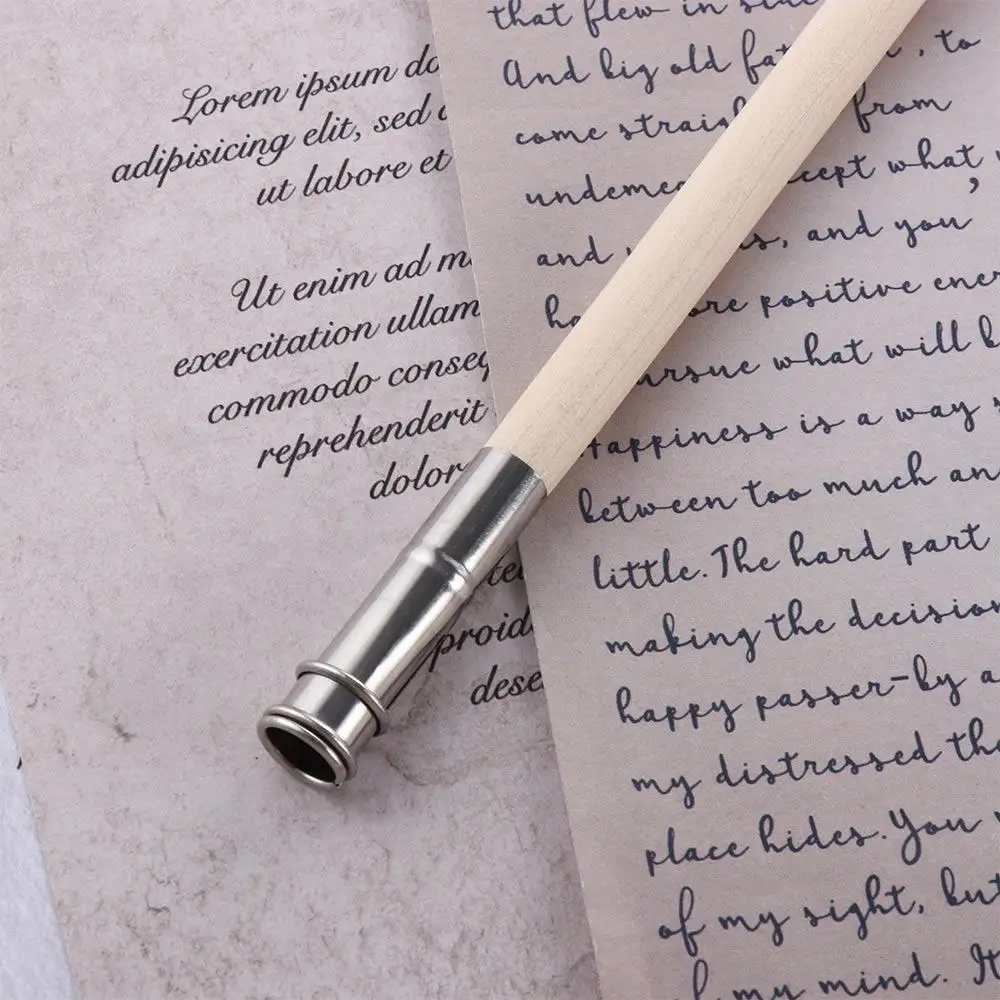 Lorem ipsum do
adipisicing elit, sed
ut labore et
Ut enim ad m
exercitation ullam
commodo conseq
reprehenderit
dolor
proid
dese
that flew in
And big old fat , to
come straigh from
what
and and you
ore positive ener
what will b
Happiness is a way
between too much an
little. The hard part
making the decision
happy passer-by a
my distressed tho
place hides. You
of my sight, but
of my mind. It